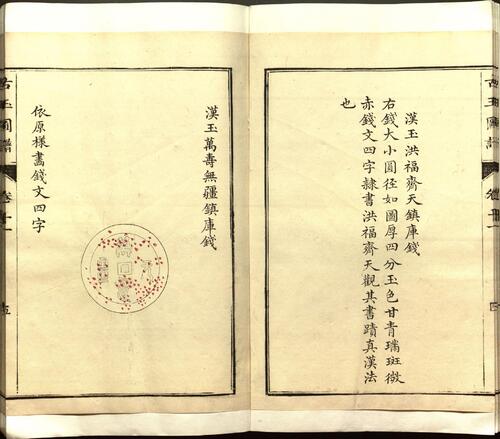 漢玉洪福齊天鎮庫錢
右錢大小圓徑如圖厚四分玉色甘青瑞斑微
赤錢文四字隸書洪福齊天觀其書蹟真漢法
也
古玉圖譜
卷十一
漢玉萬壽無疆鎮庫錢
依原樣畫錢文四字
古玉圖譜
卷十一
十五